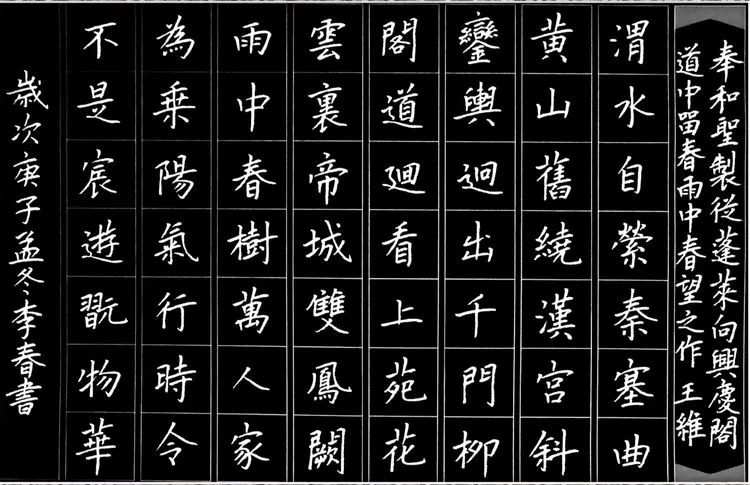 奉和聖製從蓬萊向興慶閣
道中留春雨中春望之作 王維
渭水自縈秦塞曲
黃山舊繞漢宮斜
鑾輿迥出千門柳
閣道迴看上苑花
雲裏帝城雙鳳闕
雨中春樹萬人家
為乘陽氣行時令
不是宸遊翫物華
歲次庚子孟冬李春書